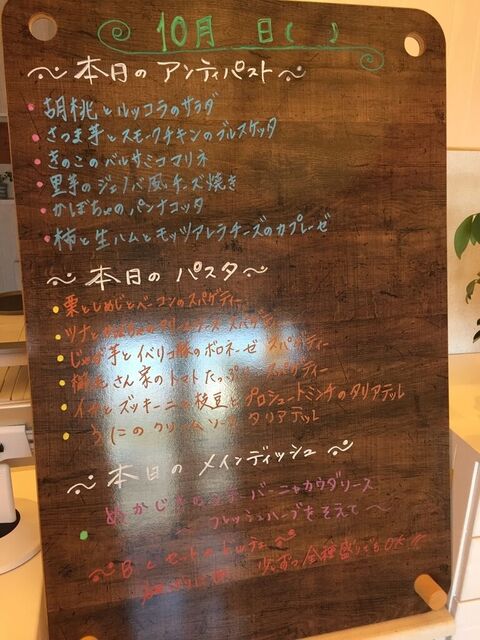 10月 日( )
本日のアンティパスト
胡桃とルッコラのサラダ
さつま芋とスモークチキンのブルスケッタ
きのこのバルサミコマリネ
里芋のジェノバ風チーズ焼き
かぼちゃのパンナコッタ
柿と生ハムとモッツァレラチーズのカプレーゼ
本日のパスタ
栗としめじとベーコンのスパゲティー
ツナと
じゃが芋とイベリコ豚のボロネーゼ スパゲティー
さん家のトマトたっぷり スパゲティー
イカとズッキーニと枝豆とプロシュートミンチのタリアテッレ
うにのクリームソース タリアテッレ
本日のメインディッシュ
めかじきの バーニャカウダソース
フレッシュハーブをそえて
Bとセットの
少しずつ全種盛りでもOK!!